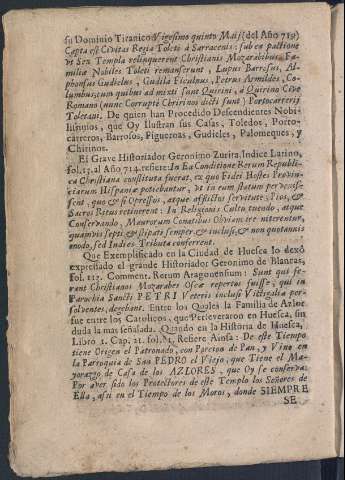 su Dominio Tiranico Vigesimo quinto Maij (del Año 719)
Capta est Civitas Regia Toleti à Sarracenis: sub ea pactione
vt Sex Templa relinquerent Christianis Mozarabibus, Fa-
miliæ Nobiles Toleti remanserunt, Lupus Barrosus, Al-
phonsus Gudielus, Gudila Ficulnus, Petrus Armildes, Co-
lumbus, cum quibus ad mixti sunt Quirini, à Quirino Cive
Romano (nunc Corruptè Chririnos dicti sunt) Portocarrerij
Toletani. De quien han Procedido Descendientes Nobi-
lissimos, que Oy Ilustran sus Casas, Toledos, Porto-
carreros, Barrosos, Figueroas, Gudieles, Palomeques, y
Chirinos.
El Grave Historiador Geronimo Zurita, Indice Latino,
fol. 13. al Año 714. refiere: In Ea Conditione Rerum Republi-
ca Christiana constituta fuerat, ex quo Fidei Hostes Provin-
ciarum Hispaniæ potiebantur, vt in eum statum pervenis-
sent, quo & si Opressos, atque afflictos servitute; Pios, &
Sacros Ritus retinerent: In Religionis Cultu tuendo, atque
Conservando, Maurorum Conatibus Obviam ire niterentur,
quamvis septi, & stipati semper, & inclusi, & non quotannis
modo, sed Indies Tributa conferrent.
Que Exemplificado en la Ciudad de Huesca lo dexó
expressado el grande Historiador Geronimo de Blancas,
fol. 112. Comment. Rerum Aragonensum: Sunt qui fe-
rant Christianos Mozarabes Oscæ repertos fuisse, qui in
Parochia Sancti PETRI Veteris inclusi Vittigalia per-
solventes, degebant. Entre los Quales la Familia de Azlor
fue entre los Catolicos, que Perseveraron en Huesca, sin
duda la mas señalada. Quando en la Historia de Huesca,
Libro 1. Cap. 21. fol. 81. Refiere Ainsa: De este Tiempo
tiene Origen el Patronado, con Porcion de Pan, y Vino en
la Parroquia de San PEDRO el Viejo, que Tiene el Ma-
yorazgo de Casa de los AZLORES, que Oy se conserva.
Por aver sido los Protectores de este Templo los Señores de
Ella, assi en el Tiempo de los Moros, donde SIEMPRE
SE